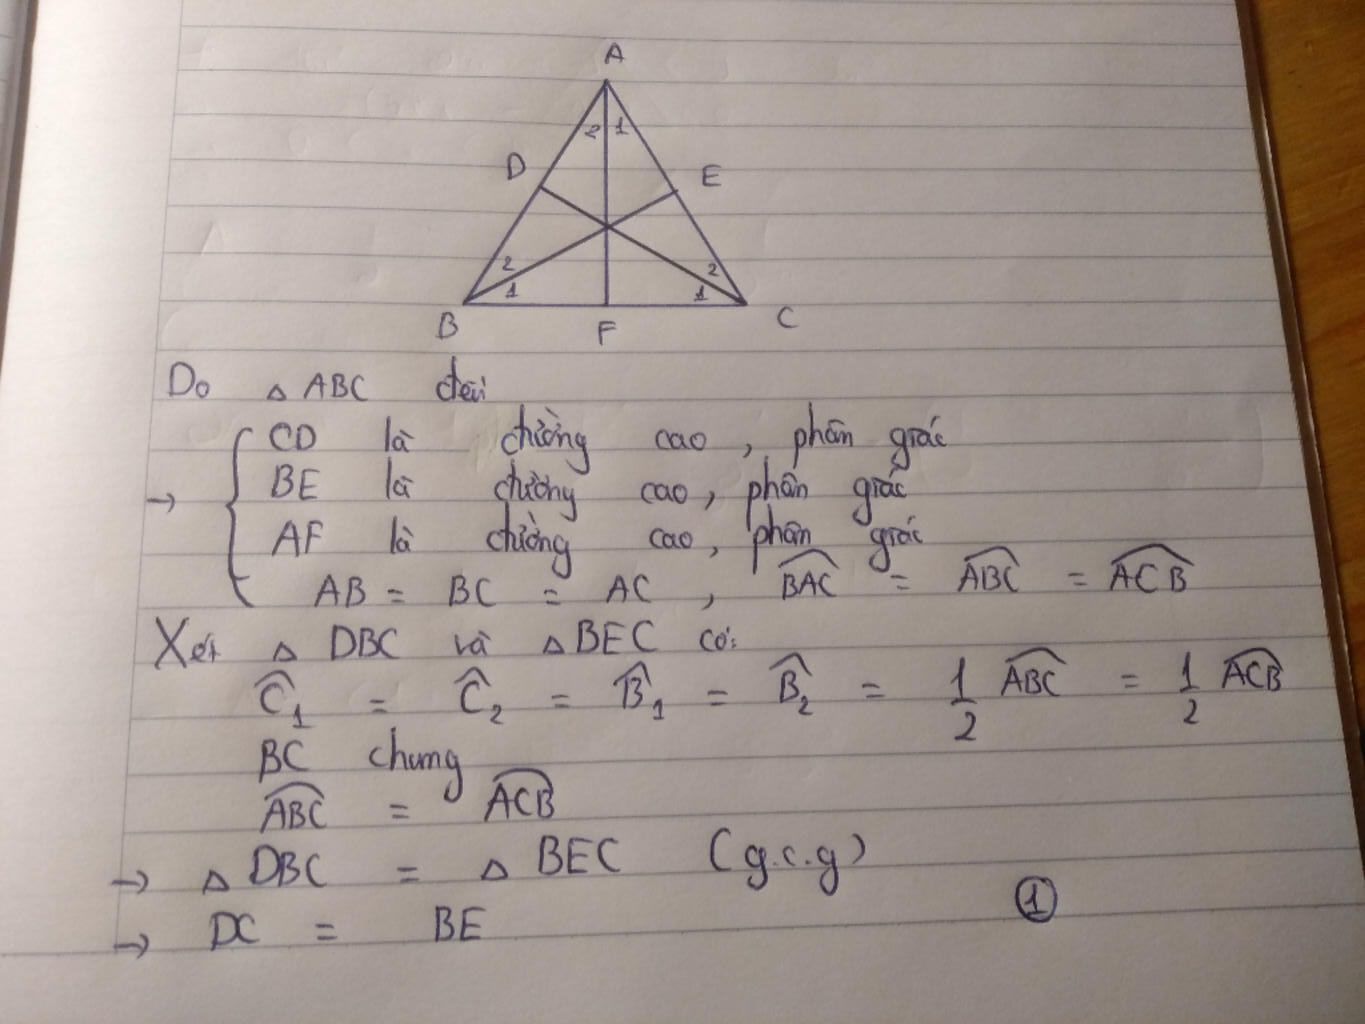 A
2 1
D E
2 2
1 1
B F C
Do △ ABC đều
CD là đường cao , phân giác
→ BE là đường cao , phân giác
AF là đường cao , phân giác
AB = BC = AC , \widehat{BAC} = \widehat{ABC} = \widehat{ACB}
Xét △ DBC và △ BEC có:
\widehat{C}₁ = \widehat{C}₂ = \widehat{B}₁ = \widehat{B}₂ = 1/2 \widehat{ABC} = 1/2 \widehat{ACB}
BC chung
\widehat{ABC} = \widehat{ACB}
→ △ DBC = △ BEC (g.c.g)
→ DC = BE ①